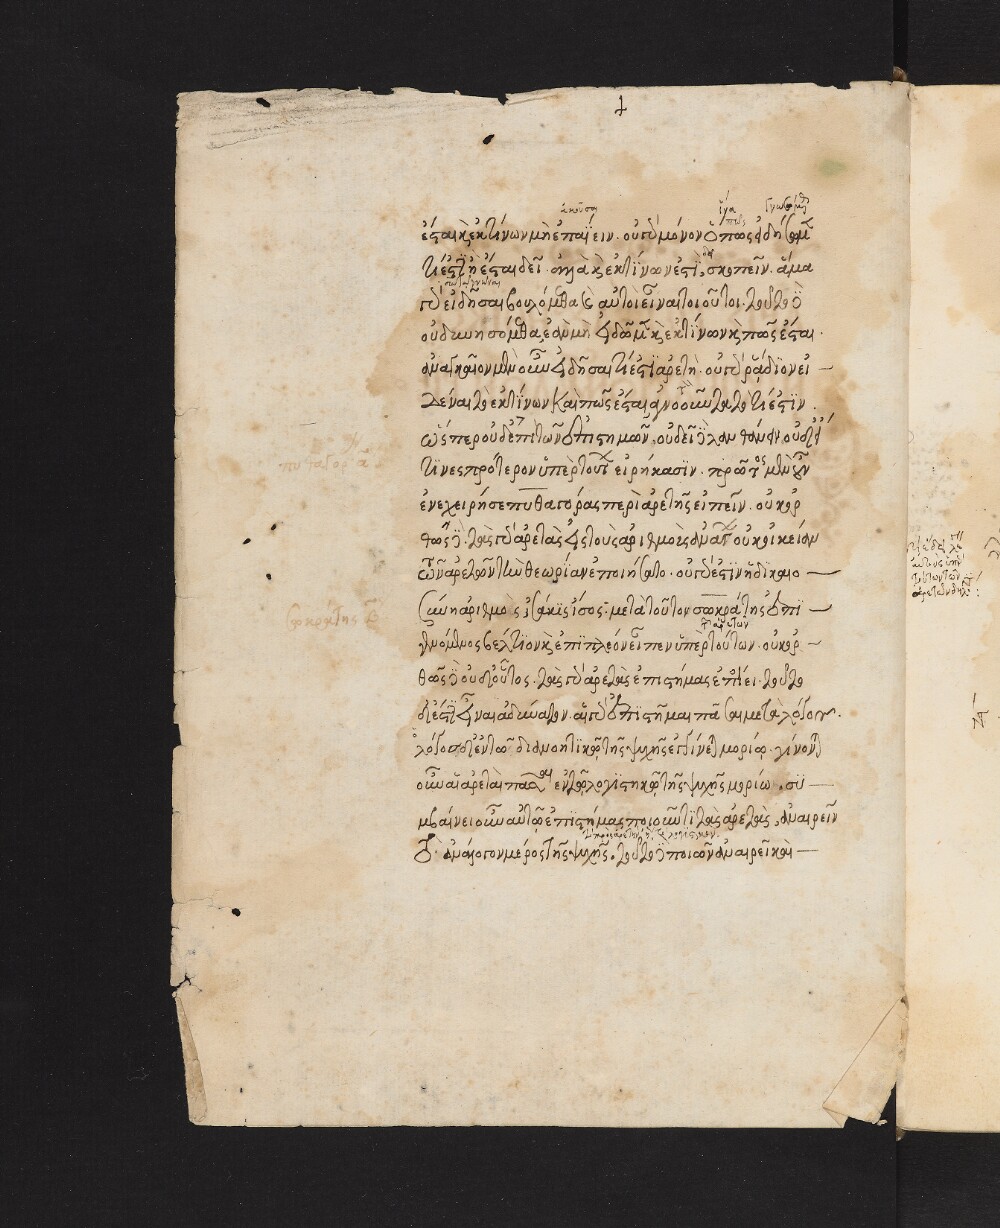 ἔσται κ ἐκ τίνων μὴ ἐπαΐειν. οὐ γὰρ μόνον ὅπως εἰδήσομεν
τί ἐστιν ἔσται δεῖ. ἀλλὰ κ ἐκ τίνων ἐστὶ, σκοπεῖν. ἅμα
γὰρ εἰδῆσαι βουλόμεθα κ αὐτοὶ εἶναι τοιοῦτοι. τοῦτο δὲ
οὐ δυνησόμεθα, ἐὰν μὴ εἰδῶμεν κ ἐκ τίνων κ πῶς ἔσται.
ἀναγκαῖον μὲν οὖν εἰδῆσαι τί ἐστϊ ἀρετὴ. οὐ γὰρ ῥᾴδϊον εἰ
δέναι τὸ ἐκ τίνων καὶ πῶς ἔσται, ἀγνοοῦντα τὸ τί ἐστϊν.
ὥσπερ οὐδ' ἐπὶ τῶν ἐπιστημῶν, οὐ δεῖ δὲ λανθάνειν οὐδ' εἴ
τϊνες πρότερον ὑπὲρ τούτων εἰρήκασϊν. πρῶτος μὲν οὖν
ἐνεχείρησε πυθαγόρας περὶ ἀρετῆς εἰπεῖν. οὐκ ὀρ
θῶς δὲ. τὰς γὰρ ἀρετὰς εἰς τοὺς ἀριθμοὺς ἀναγων οὐκ οἰκείαν
τῶν ἀρετῶν τὴν θεωρίαν ἐποιήσατο. οὐ γὰρ ἐστϊν ἡ δικαιο
σύνη ἀριθμὸς ἰσάκϊς ἴσος: μετὰ τοῦτον σωκράτης ἐπι
γενόμενος βέλτϊον κ ἐπὶ πλέον εἶπεν ὑπὲρ τούτων. οὐκ ὀρ
θῶς δὲ οὐδ' οὗτος. τὰς γὰρ ἀρετὰς ἐπιστήμας ἐποίει. τοῦτο
δ' ἐστὶν εἶναι ἀδύνατον. αἱ γὰρ ἐπιστῆμαι πᾶσαι μετὰ λόγου.
λόγος δ' ἐν τῷ διανοητϊκῷ τῆς ψυχῆς ἐγγίνεται μορίῳ. γίνονται
οὖν αἱ ἀρεταὶ πᾶσαι ἐν τῷ λογϊστηκῷ τῆς ψυχῆς μορίω. συ
μβαίνει οὖν αὐτῷ ἐπιστήμας ποιοῦντϊ τὰς ἀρετὰς, ἀναιρεῖν
τὸ ἄλογον μέρος τῆς ψυχῆς. τοῦτο δὲ ποιῶν ἀναιρεῖ καὶ